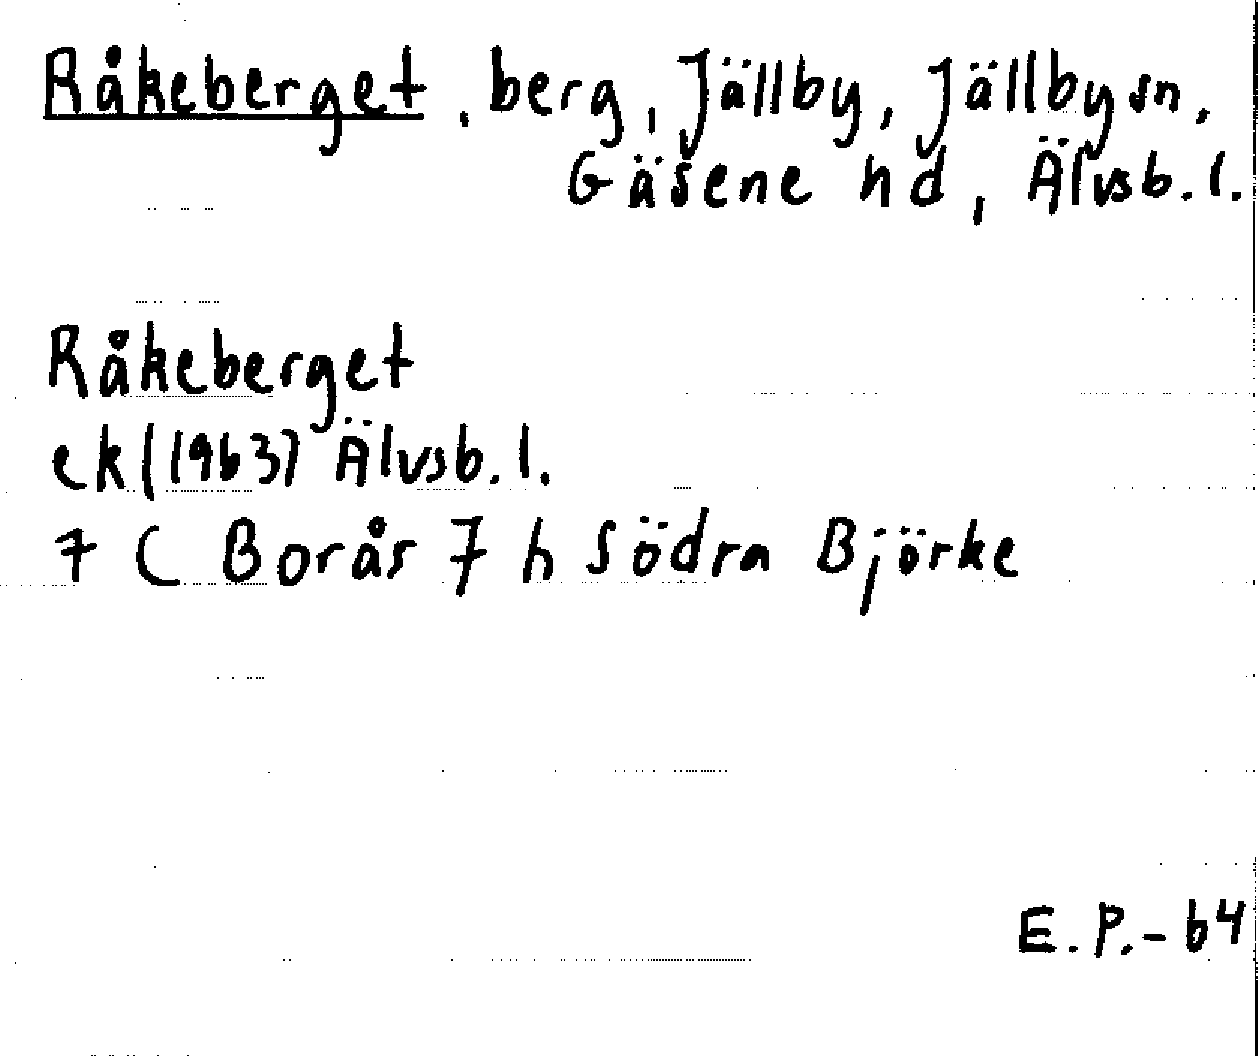 Råkeberget, berg, Jällby, Jällby sn,
Gäsene hd, Älvsb. l.
Råkeberget
ek (1963) Älvsb. l.
7 C Borås 7 h Södra Björke
E. P. - 64